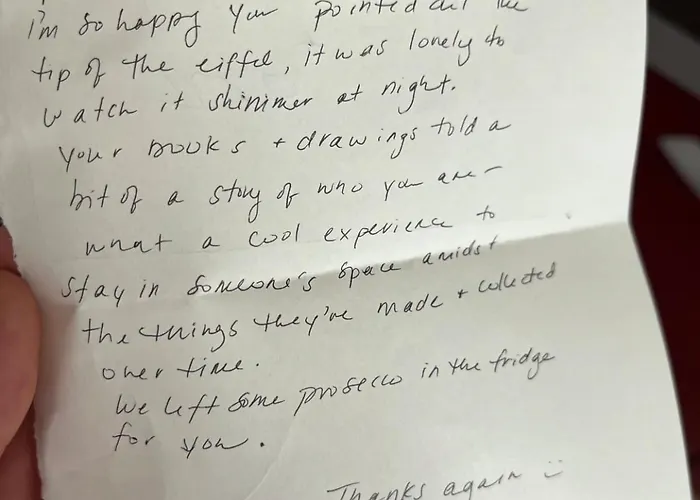 I'm so happy you pointed out the
tip of the eiffel, it was lonely to
watch it shimmer at night.
your books + drawings told a
bit of a story of who you are -
what a cool experience to
stay in someone's space amidst
the things they've made + collected
over time.
We left some prosecco in the fridge
for you.
Thanks again :)